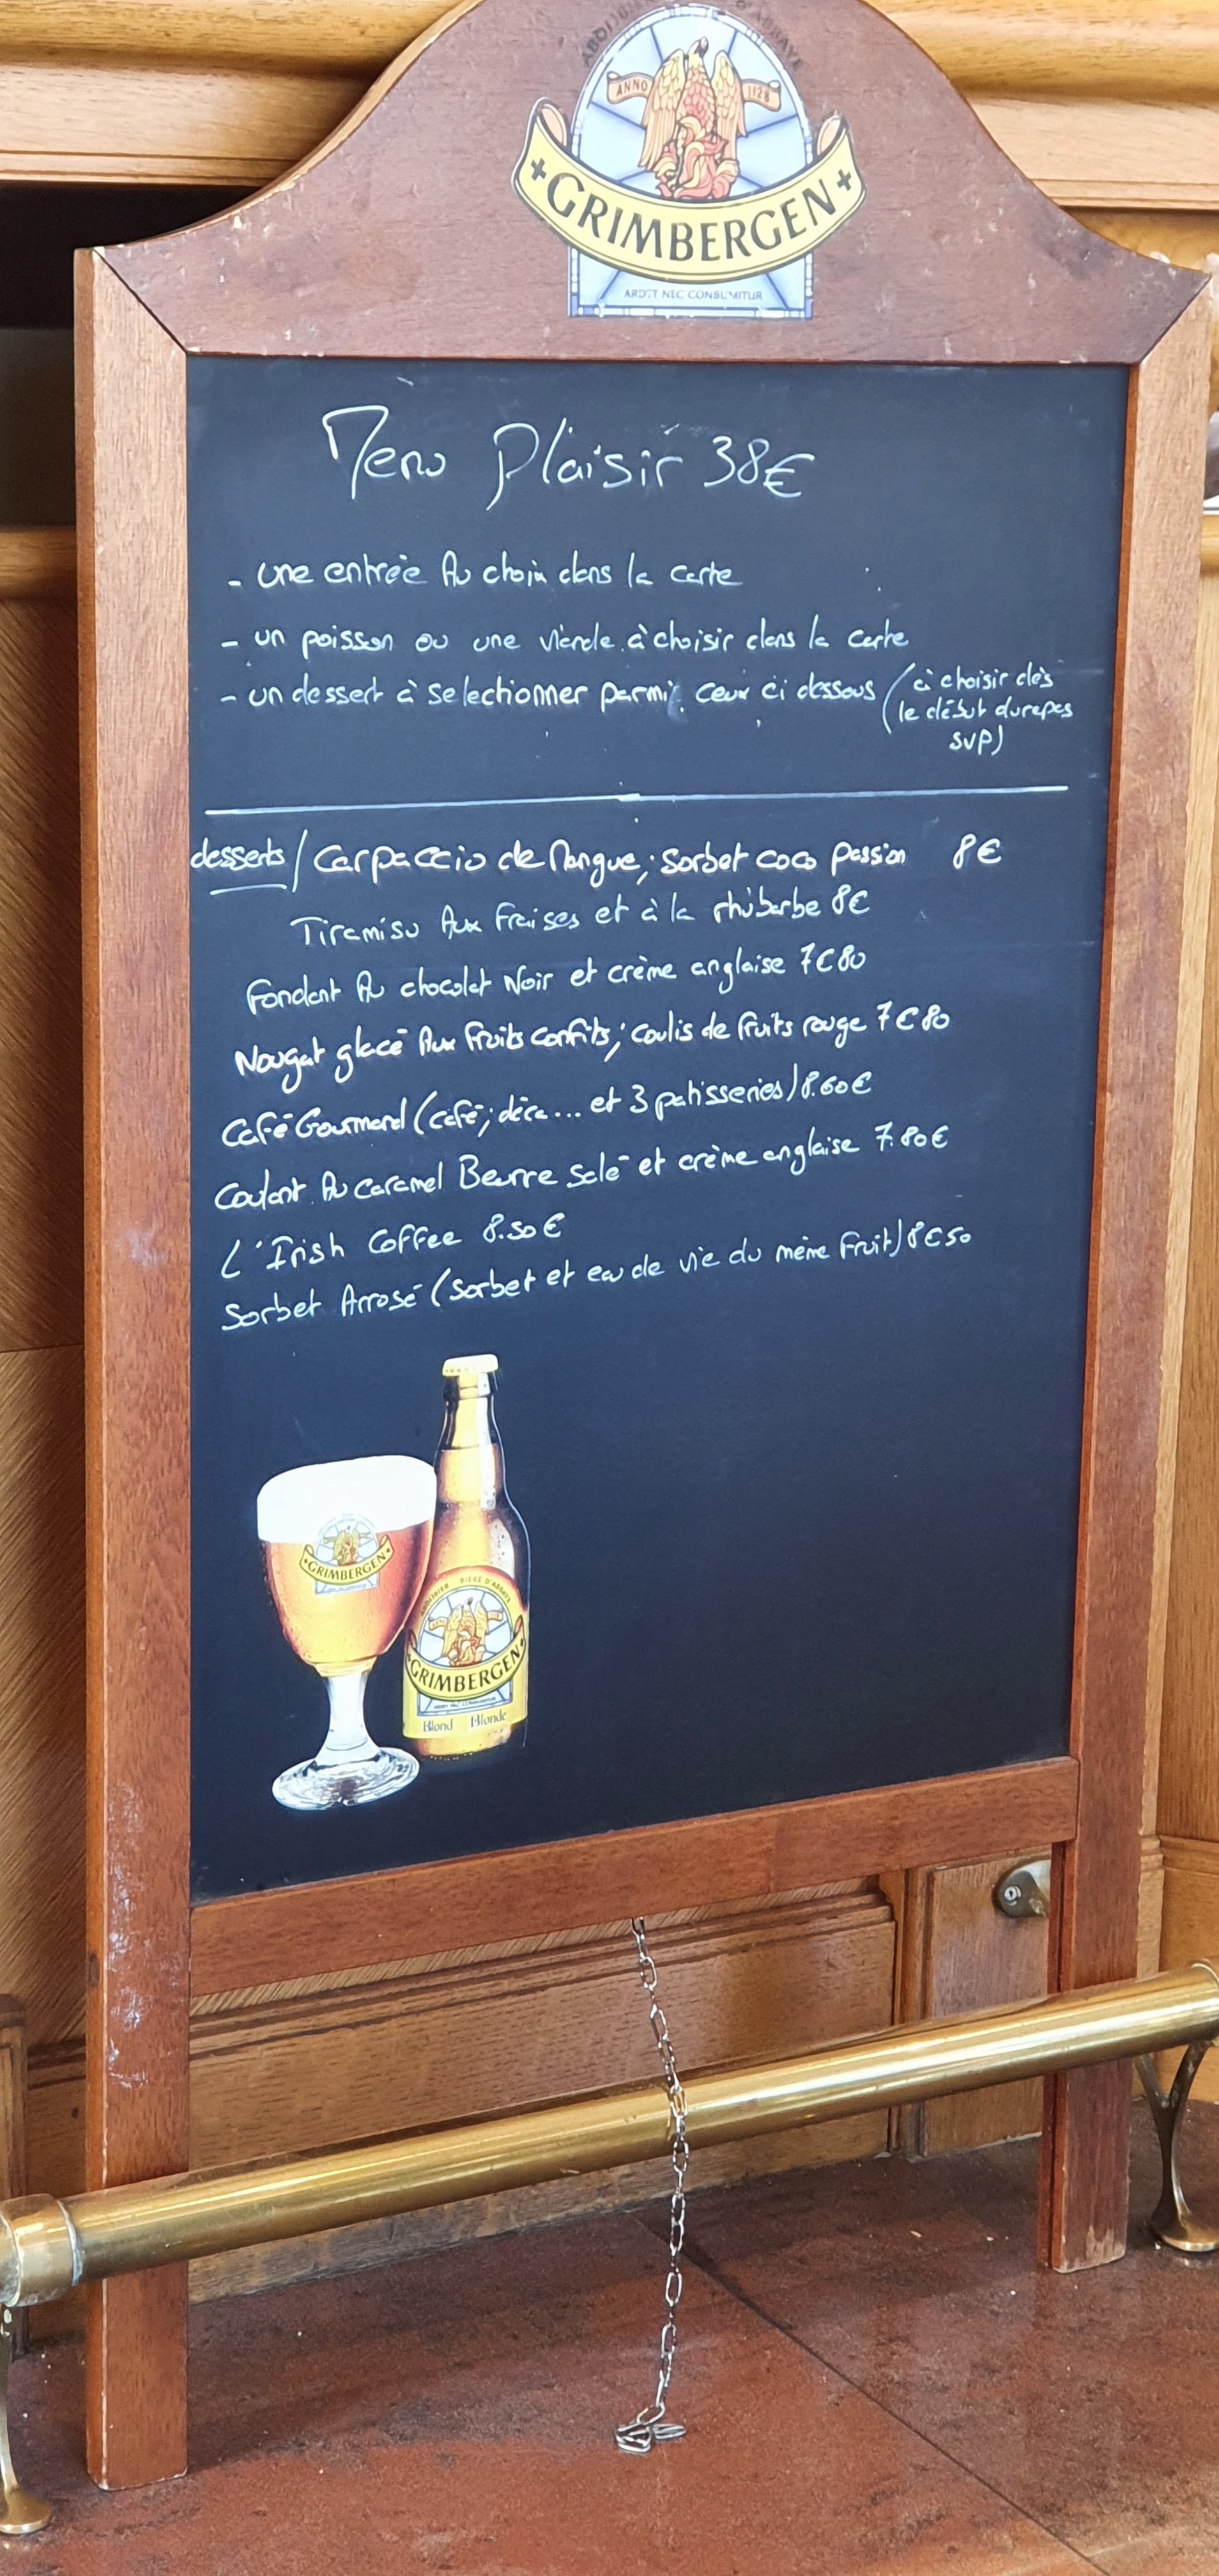 ANNO 1128
GRIMBERGEN
ARDET NEC CONSUMITUR
Menu Plaisir 38€
- une entrée Au choix dans la carte
- un poisson ou une viande à choisir dans la carte
- un dessert à selectionner parmi ceux ci dessous (à choisir dès
le début du repas
SVP)
desserts / Carpaccio de Mangue; sorbet coco passion 8€
Tiramisu Aux fraises et à la rhubarbe 8€
Fondant Au chocolat Noir et crème anglaise 7€80
Nougat glacé Aux fruits confits; coulis de fruits rouge 7€80
Café Gourmand (café; déca... et 3 patisseries) 8.60€
Coulant Au caramel Beurre salé et crème anglaise 7.80€
L'Irish Coffee 8.50€
Sorbet Arrosé (sorbet et eau de vie du même fruit) 8€50
GRIMBERGEN
GRIMBERGEN
Blond Blonde